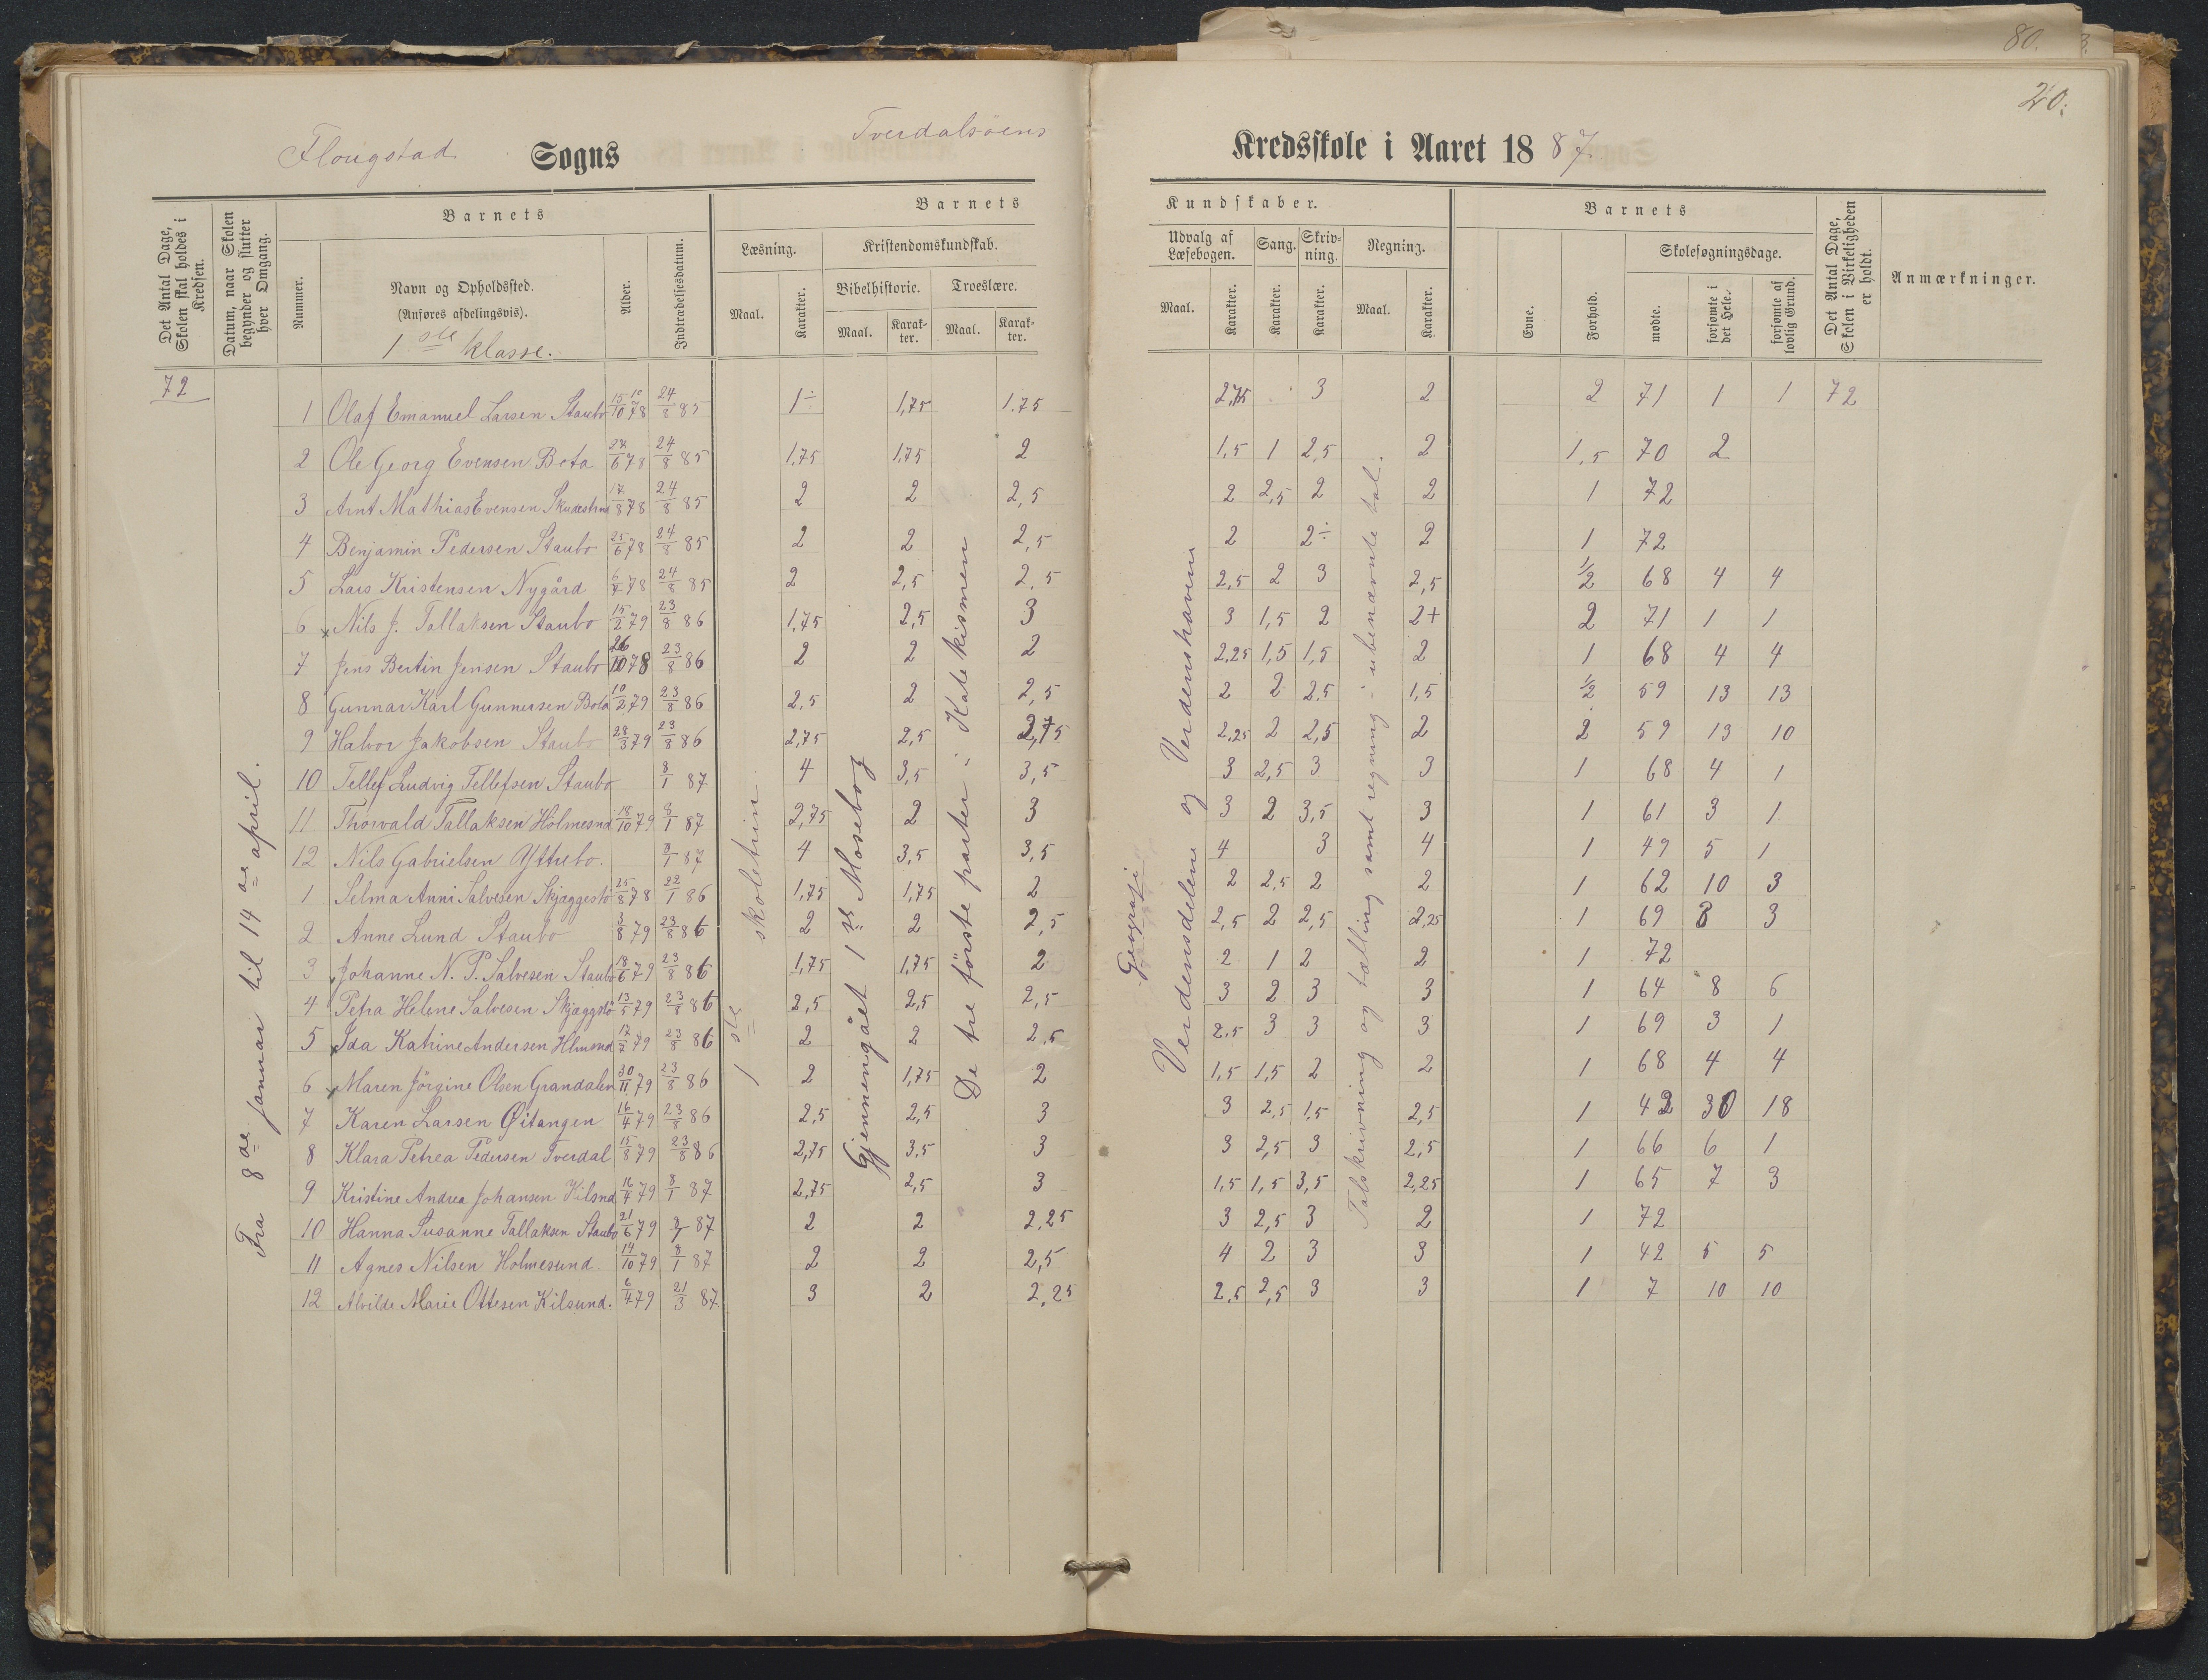 80.
20.
Flougstad Sogns Tverdalsöens
Kredsskole i Aaret 1887.
Det Antal Dage, Skolen skal holdes i Kredsen.
Datum, naar Skolen begynder og slutter hver Omgang.
Barnets
Nummer.
Navn og Opholdssted.
(Anføres afdelingsvis).
1ste klasse.
Alder.
Indtrædelsesdatum.
Barnets
Læsning.
Maal.
Karakter.
Kristendomskundskab.
Bibelhistorie.
Maal.
Karakter.
Troeslære.
Maal.
Karakter.
Kundskaber.
Udvalg af Læsebogen.
Maal.
Karakter.
Sang.
Karakter.
Skrivning.
Karakter.
Regning.
Maal.
Karakter.
Barnets
Evne.
Forhold.
Skolesøgningsdage.
mødte.
forsømte i det Hele.
forsømte af lovlig Grund.
Det Antal Dage, Skolen i Virkeligheden er holdt.
Anmærkninger.
72
Fra 8de januar til 14de april.
1ste skoletrin
Gjennengået 1ste Mosebog
De tre förste parter i Katekismen
Geografi
Verdensdelene og Verdenshavene
Talskrivning og tælling samt regning i ubenævnte tal.
1 Olaf Emanuel Larsen Staubo 15/10 78 24/8 85 1÷ 1,75 1.75 2,75 3 2 2 71 1 1 72
2 Ole Georg Evensen Bota 27/6 78 24/8 85 1,75 1,75 2 1,5 1 2,5 2 1,5 70 2
3 Arnt Mathias Evensen 17/8 78 24/8 85 2 2 2,5 2 2,5 2 2 1 72
4 Benjamin Pedersen Staubo 25/6 78 24/8 85 2 2 2,5 2 2÷ 2 1 72
5 Lars Kristensen Nygård 6/7 78 24/8 85 2 2,5 2,5 2,5 2 3 2,5 1/2 68 4 4
6 Nils J. Tallaksen Staubo 15/2 79 23/8 86 1,75 2,5 3 3 1,5 2 2+ 2 71 1 1
7 Jens Bertin Jensen Staubo 26/10 78 23/8 86 2 2 2 2,25 1,5 1,5 2 1 68 4 4
8 Gunnar Karl Gunnersen Bota 10/2 79 23/8 86 2,5 2 2,5 2 2 2,5 1,5 1/2 59 13 13
9 Halvor Jakobsen Staubo 28/3 79 23/8 86 2,75 2,5 2,75 2,25 2 2,5 2 2 59 13 10
10 Tellef Ludvig Tellefsen Staubo 8/1 87 4 3,5 3,5 3 2,5 3 3 1 68 4 1
11 Thorvald Tallaksen Holmesnd 18/10 79 8/1 87 2,75 2 3 3 2 3,5 3 1 61 3 1
12 Nils Gabrielsen Yttrebo. 8/1 87 4 3,5 3,5 4 3 4 1 49 5 1
1 Selma Anni Salvesen Skjæggestö 25/8 78 22/1 86 1,75 1,75 2 2 2,5 2 2 1 62 10 3
2 Anne Lund Staubo 3/8 79 23/8 86 2 2 2,5 2,5 2 2,5 2,25 1 69 3 3
3 Johanne N. P. Salvesen Staubo 18/6 79 23/8 86 1,75 1,75 2 2 1 2 2 1 72
4 Petra Helene Salvesen Skjæggstö 13/5 79 23/8 86 2,5 2,5 2,5 3 2 3 3 1 64 8 6
5 Ida Katrine Andersen Hlmsnd 17/7 79 23/8 86 2 2 2,5 2,5 3 3 3 1 69 3 1
6 Maren Jörgine Olsen Grandalen 30/11 79 23/8 86 2 1,75 2 1,5 1,5 2 2 1 68 4 4
7 Karen Larsen Øitangen 16/4 79 23/8 86 2,5 2,5 3 3 2,5 1,5 2,5 1 42 30 18
8 Klara Petrea Pedersen Tverdal 15/8 79 23/8 86 2,75 3,5 3 3 2,5 3 2,5 1 66 6 1
9 Kristine Andrea Johansen Kilsnd 16/4 79 8/1 87 2,75 2,5 3 1,5 1,5 3,5 2,25 1 65 7 3
10 Hanna Susanne Tallaksen Staubo 21/6 79 8/1 87 2 2 2,25 3 2,5 3 2 1 72
11 Agnes Nilsen Holmesund 14/10 79 8/1 87 2 2 2,5 4 2 3 3 1 42 5 5
12 Alvilde Marie Ottesen Kilsund. 6/4 79 21/3 87 3 2 2,25 2,5 2,5 3 3 1 7 10 10